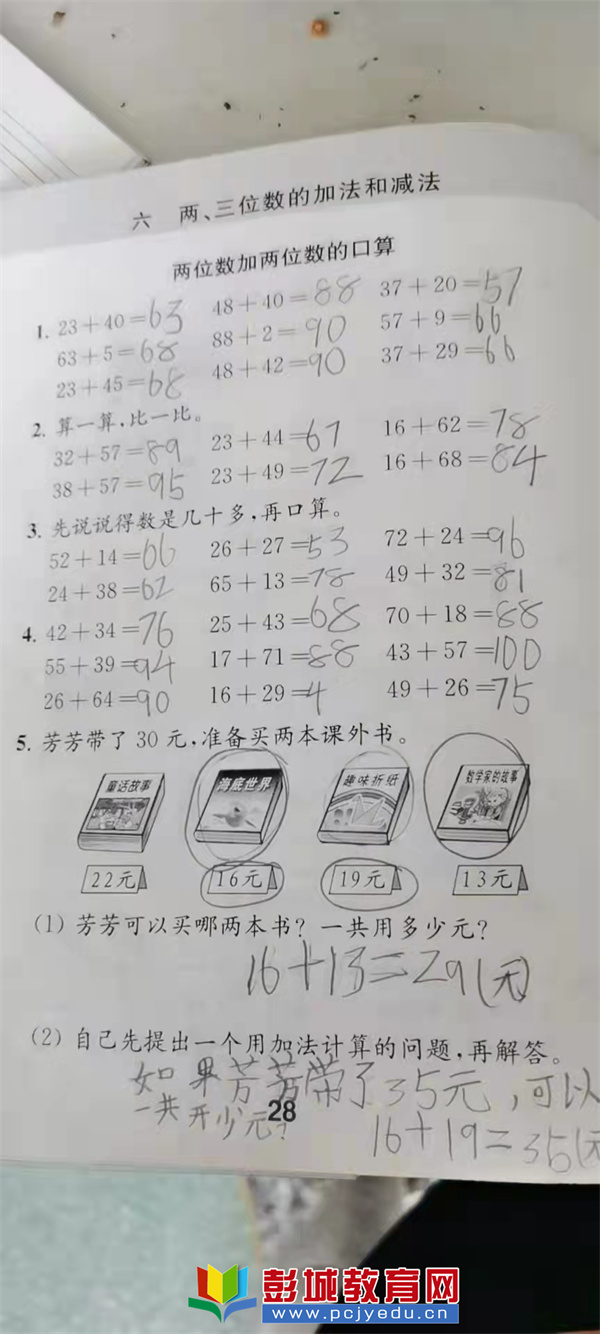 六 两、三位数的加法和减法
两位数加两位数的口算
1. 23+40=63 48+40=88 37+20=57
63+5=68 88+2=90 57+9=66
23+45=68 48+42=90 37+29=66
2. 算一算,比一比。
32+57=89 23+44=67 16+62=78
38+57=95 23+49=72 16+68=84
3. 先说说得数是几十多,再口算。
52+14=66 26+27=53 72+24=96
24+38=62 65+13=78 49+32=81
4. 42+34=76 25+43=68 70+18=88
55+39=94 17+71=88 43+57=100
26+64=90 16+29=4 49+26=75
5. 芳芳带了 30 元,准备买两本课外书。
童话故事 海底世界 趣味折纸 数学家的故事
22元 16元 19元 13元
(1) 芳芳可以买哪两本书? 一共用多少元?
16+13=29(元)
(2) 自己先提出一个用加法计算的问题,再解答。
如果芳芳带了35元,可以
一共 少元?
28
16+19=35(元
彭城教育网
www.pcjyedu.cn